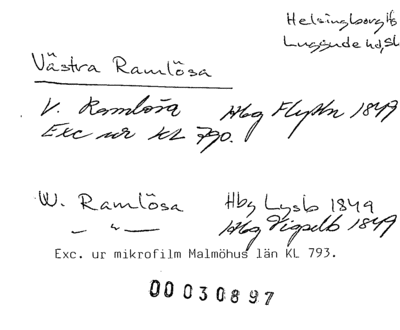 Helsingborg lfs
Luggude hd, sk
Västra Ramlösa
V. Ramlösa Hbg Flpbn 1849
Exc ur KL 790.
W. Ramlösa Hbg Lysb 1849
— " — Hbg Vigselb 1849
Exc. ur mikrofilm Malmöhus län KL 793.
00030897